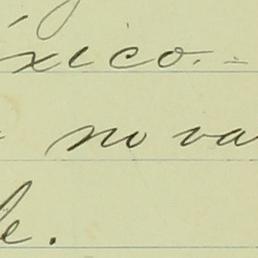 éxico.=
no va
le.